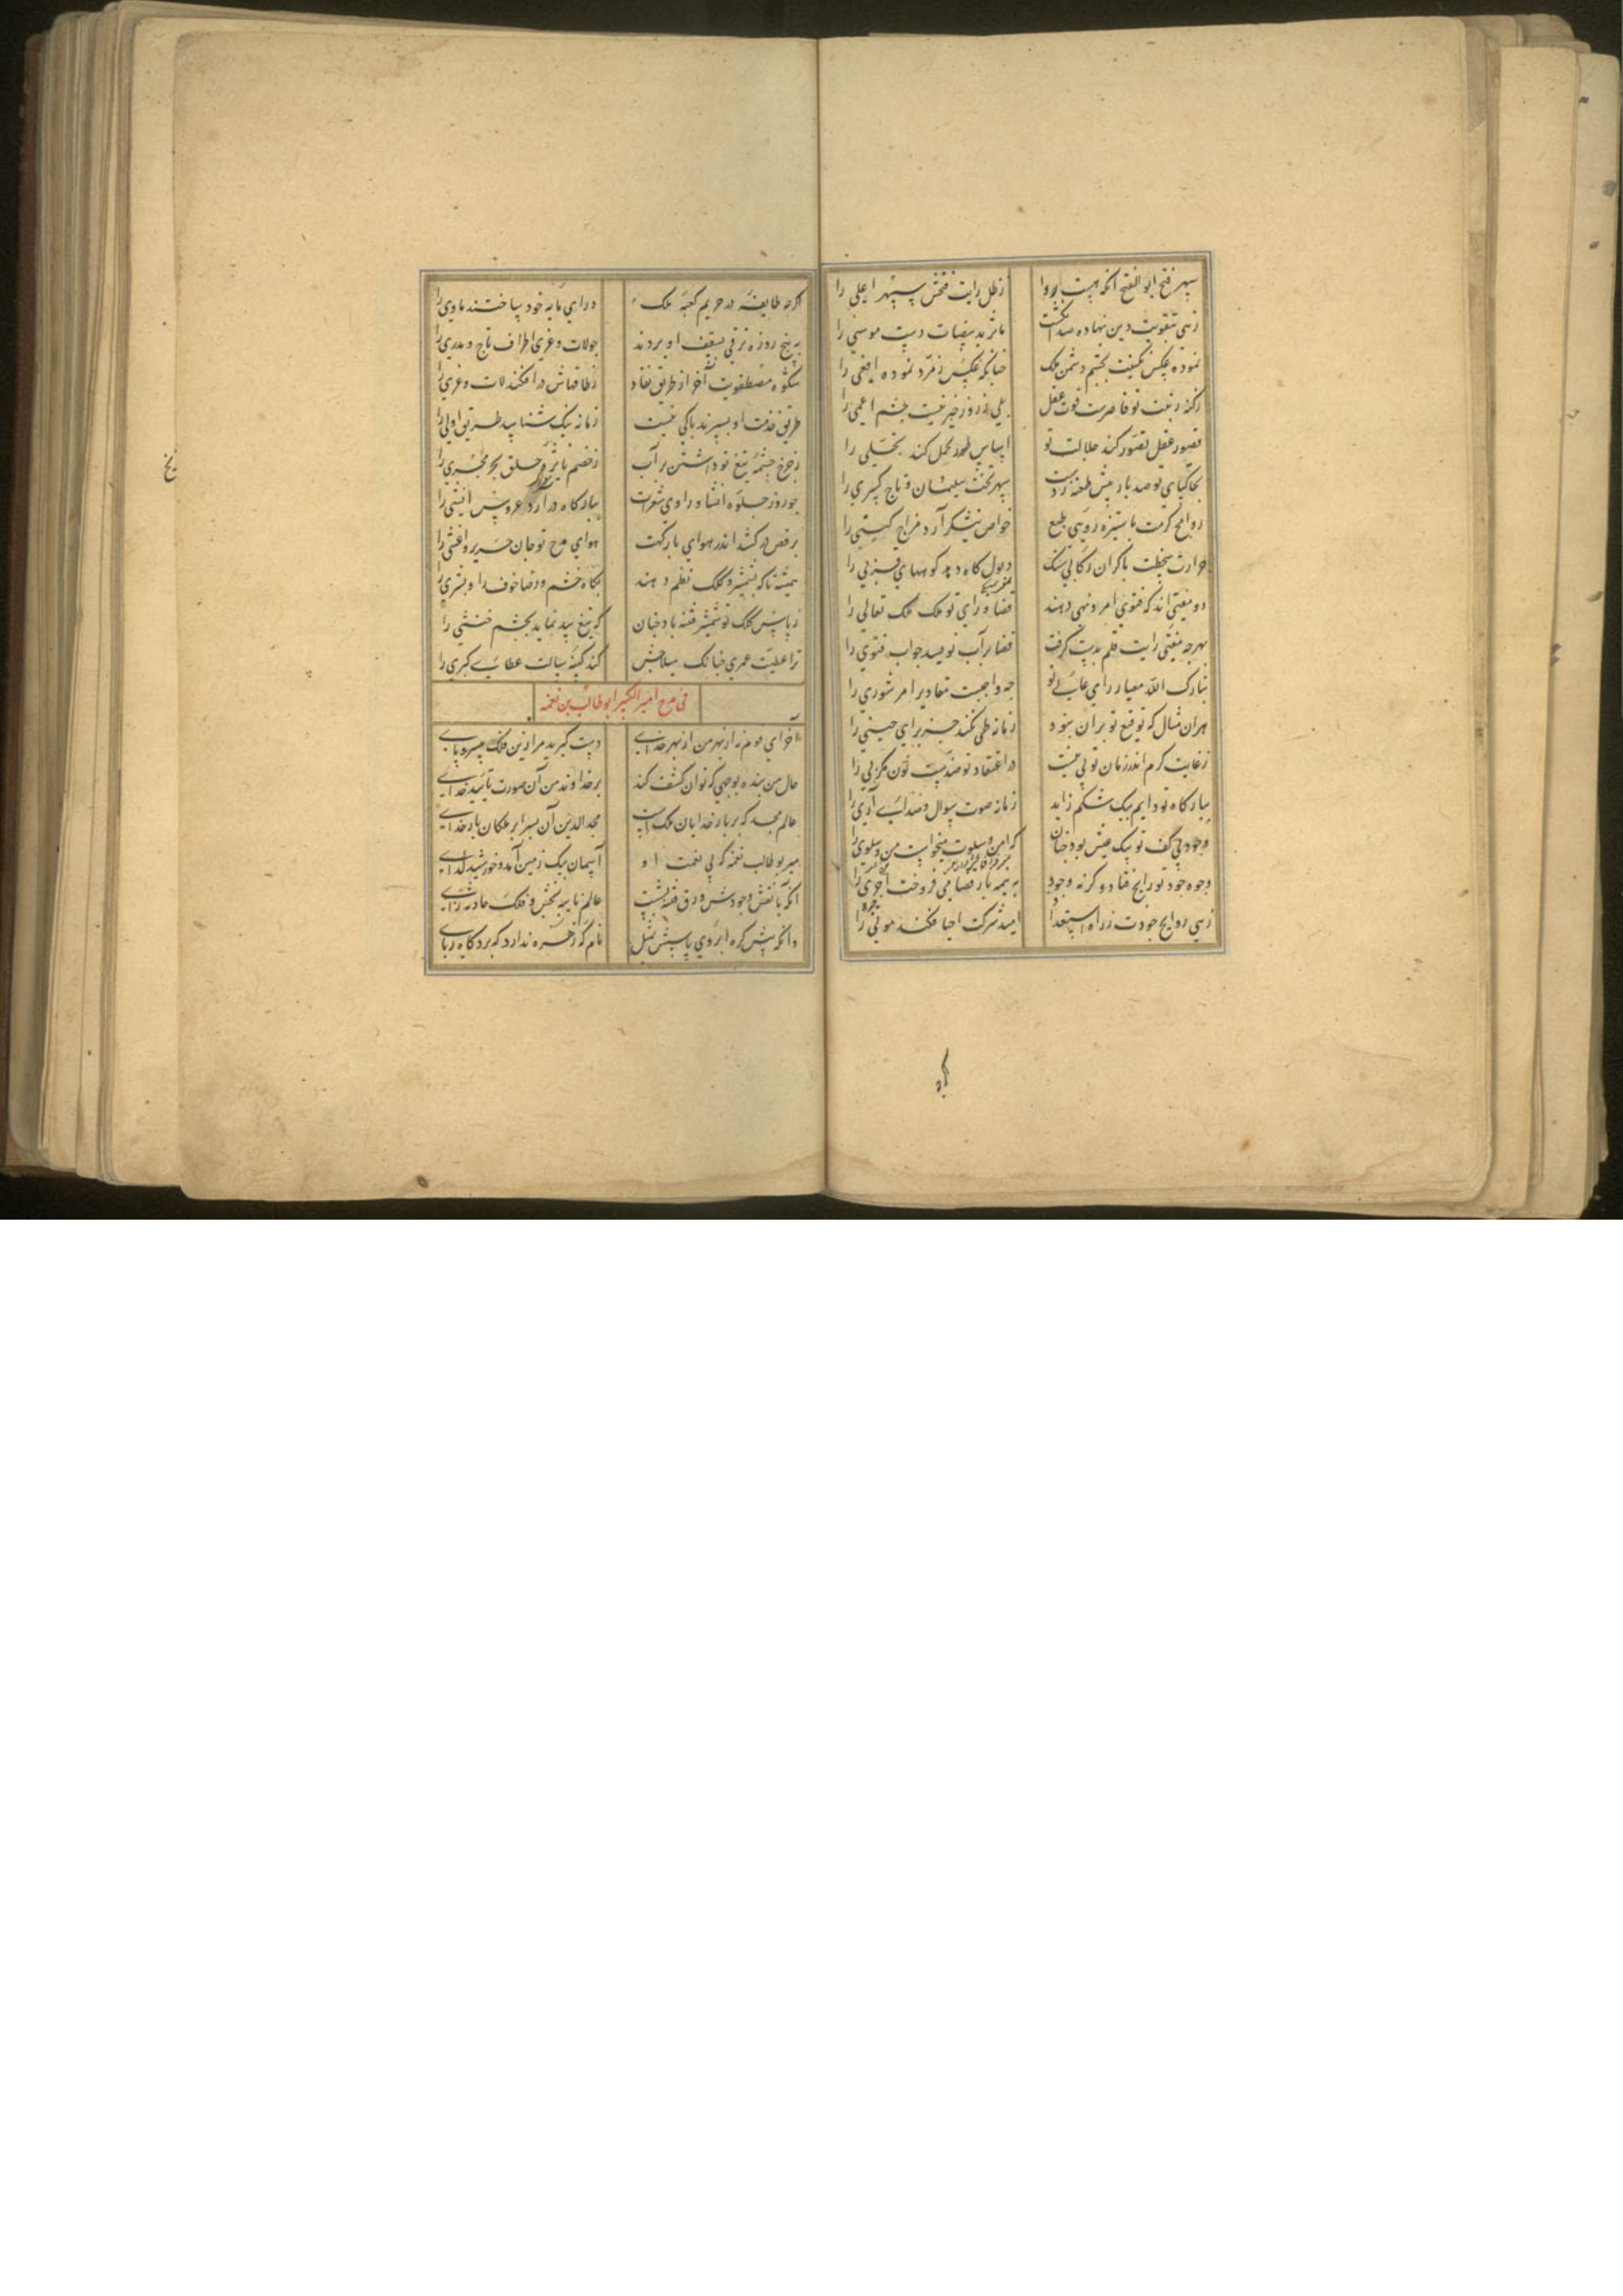 سپهر فتح ابو الفتح آنکه هست او را    ز ظل رایت فتحش سپهر اعلی را
زهی بتقویت دین نهاده صد انگشت    مآثر ید بیضات دست موسی را
نموده عکس نگینت بچشم دشمن ملک    چنانکه عکس زمرد نموده افعی را
ز کنه رتبت تو قاصرست قوت عقل    بلی ز روز خبر نیست چشم اعمی را
قصور عقل تصور کند جلالت تو    اساس طور تحمل کند تجلی را
بخاکپای تو صد بار بیش طعنه زدست    سپهر تخت سلیمان و تاج کسری را
روایح کرمت با ستیزه رویی طبع    خواص نیشکر آرد مزاج کسنی را
حوادث سخطت با گران رکابی سنگ    ذبول کاه دهد کوههای فربی را
دو مفتی اند که فتوی امر و نهی دهند    قضا و رای تو ملک ملک تعالی را
بهرچه مفتی رایت قلم بدست گرفت    قضا بر آب نویسد جواب فتوی را
تبارک الله معیار رای عالی تو    چه واجبست مقادیر امر شوری را
هران مثال که توقیع تو بران نبود    زمانه طی نکند جز برای حینی را
ز غایت کرم اندر زمان تو نی نیست    در اعتقاد تو ضدیست نون مگر نی را
ببارگاه تو دایم بیک شکم زاید    زمانه صوت سوال و صدای آری را
وجود بی کف تو بیک عیش بود چنان    که امن و سلوت میخواست من و سلوی را
وجوه جود تو رایج فتاد و گرنه وجود    به نیمه باز قضا می فروخت اجری را
زهی روایح جودت ز راه استعداد    امید شرکت احیا فکنده موتی را
اگرچه طایفه در حریم کعبه ملک    ورای پایه خود ساختند ماوی را
به پنج روزه ترقی بسقف او بردند    چو لات و عزی اطراف تاج و مدری را
شکوه مصطفویت آخر از طریق نفاذ    ز طاقهاش درافکند لات و عزی را
طریق خدمت او بسپرند باکی نیست    زمانه نیک شناسد طریق اولی را
ز چرخ چشمه تیغ تو داشتن پر آب    ز خصم نایژه حلق بحر مجری را
چو روز جلوه انشا و راوی شعرت    ببارگاه درآرد عروس انشی را
برقص درکشد اندر هوای بارگهت    هوای مدح تو جان جریر و اعشی را
همیشه تا که بشمشیر و کلک نظم دهند    بگاه خشم و رضا خوف را و بشری را
ز پاس کلک تو شمشیر فتنه باد چنان    که تیغ بید نماید بچشم خنثی را
ترا عطیت عمری چنانک سیلاحش    کند کبیسه سالت عطای کبری را
فی مدح امیر الکبیر ابو طالب بن نعمه
آخر ای قوم نه از بهر من از بهر خدای    دست گیرید مرا زین فلک بی سر و پای
حال من بنده بوجهی که توان کشف کند    بر خداوند من آن صورت تایید خدای
عالم مجد که بر بار خدایان ملک است    مجد الدین آن بسزا بر ملکان بار خدای
میر بو طالب نعمه که بی نعمت او    آسمان بیک زمین آمد و خورشید گدای
آنکه با نقش وجودش ورق فتنه بشست    عالم نایبه بخش و فلک حادثه زای
وانکه پیش گره ابروی پاسش بمثل    نام که زهره ندارد که برد کاه ربای